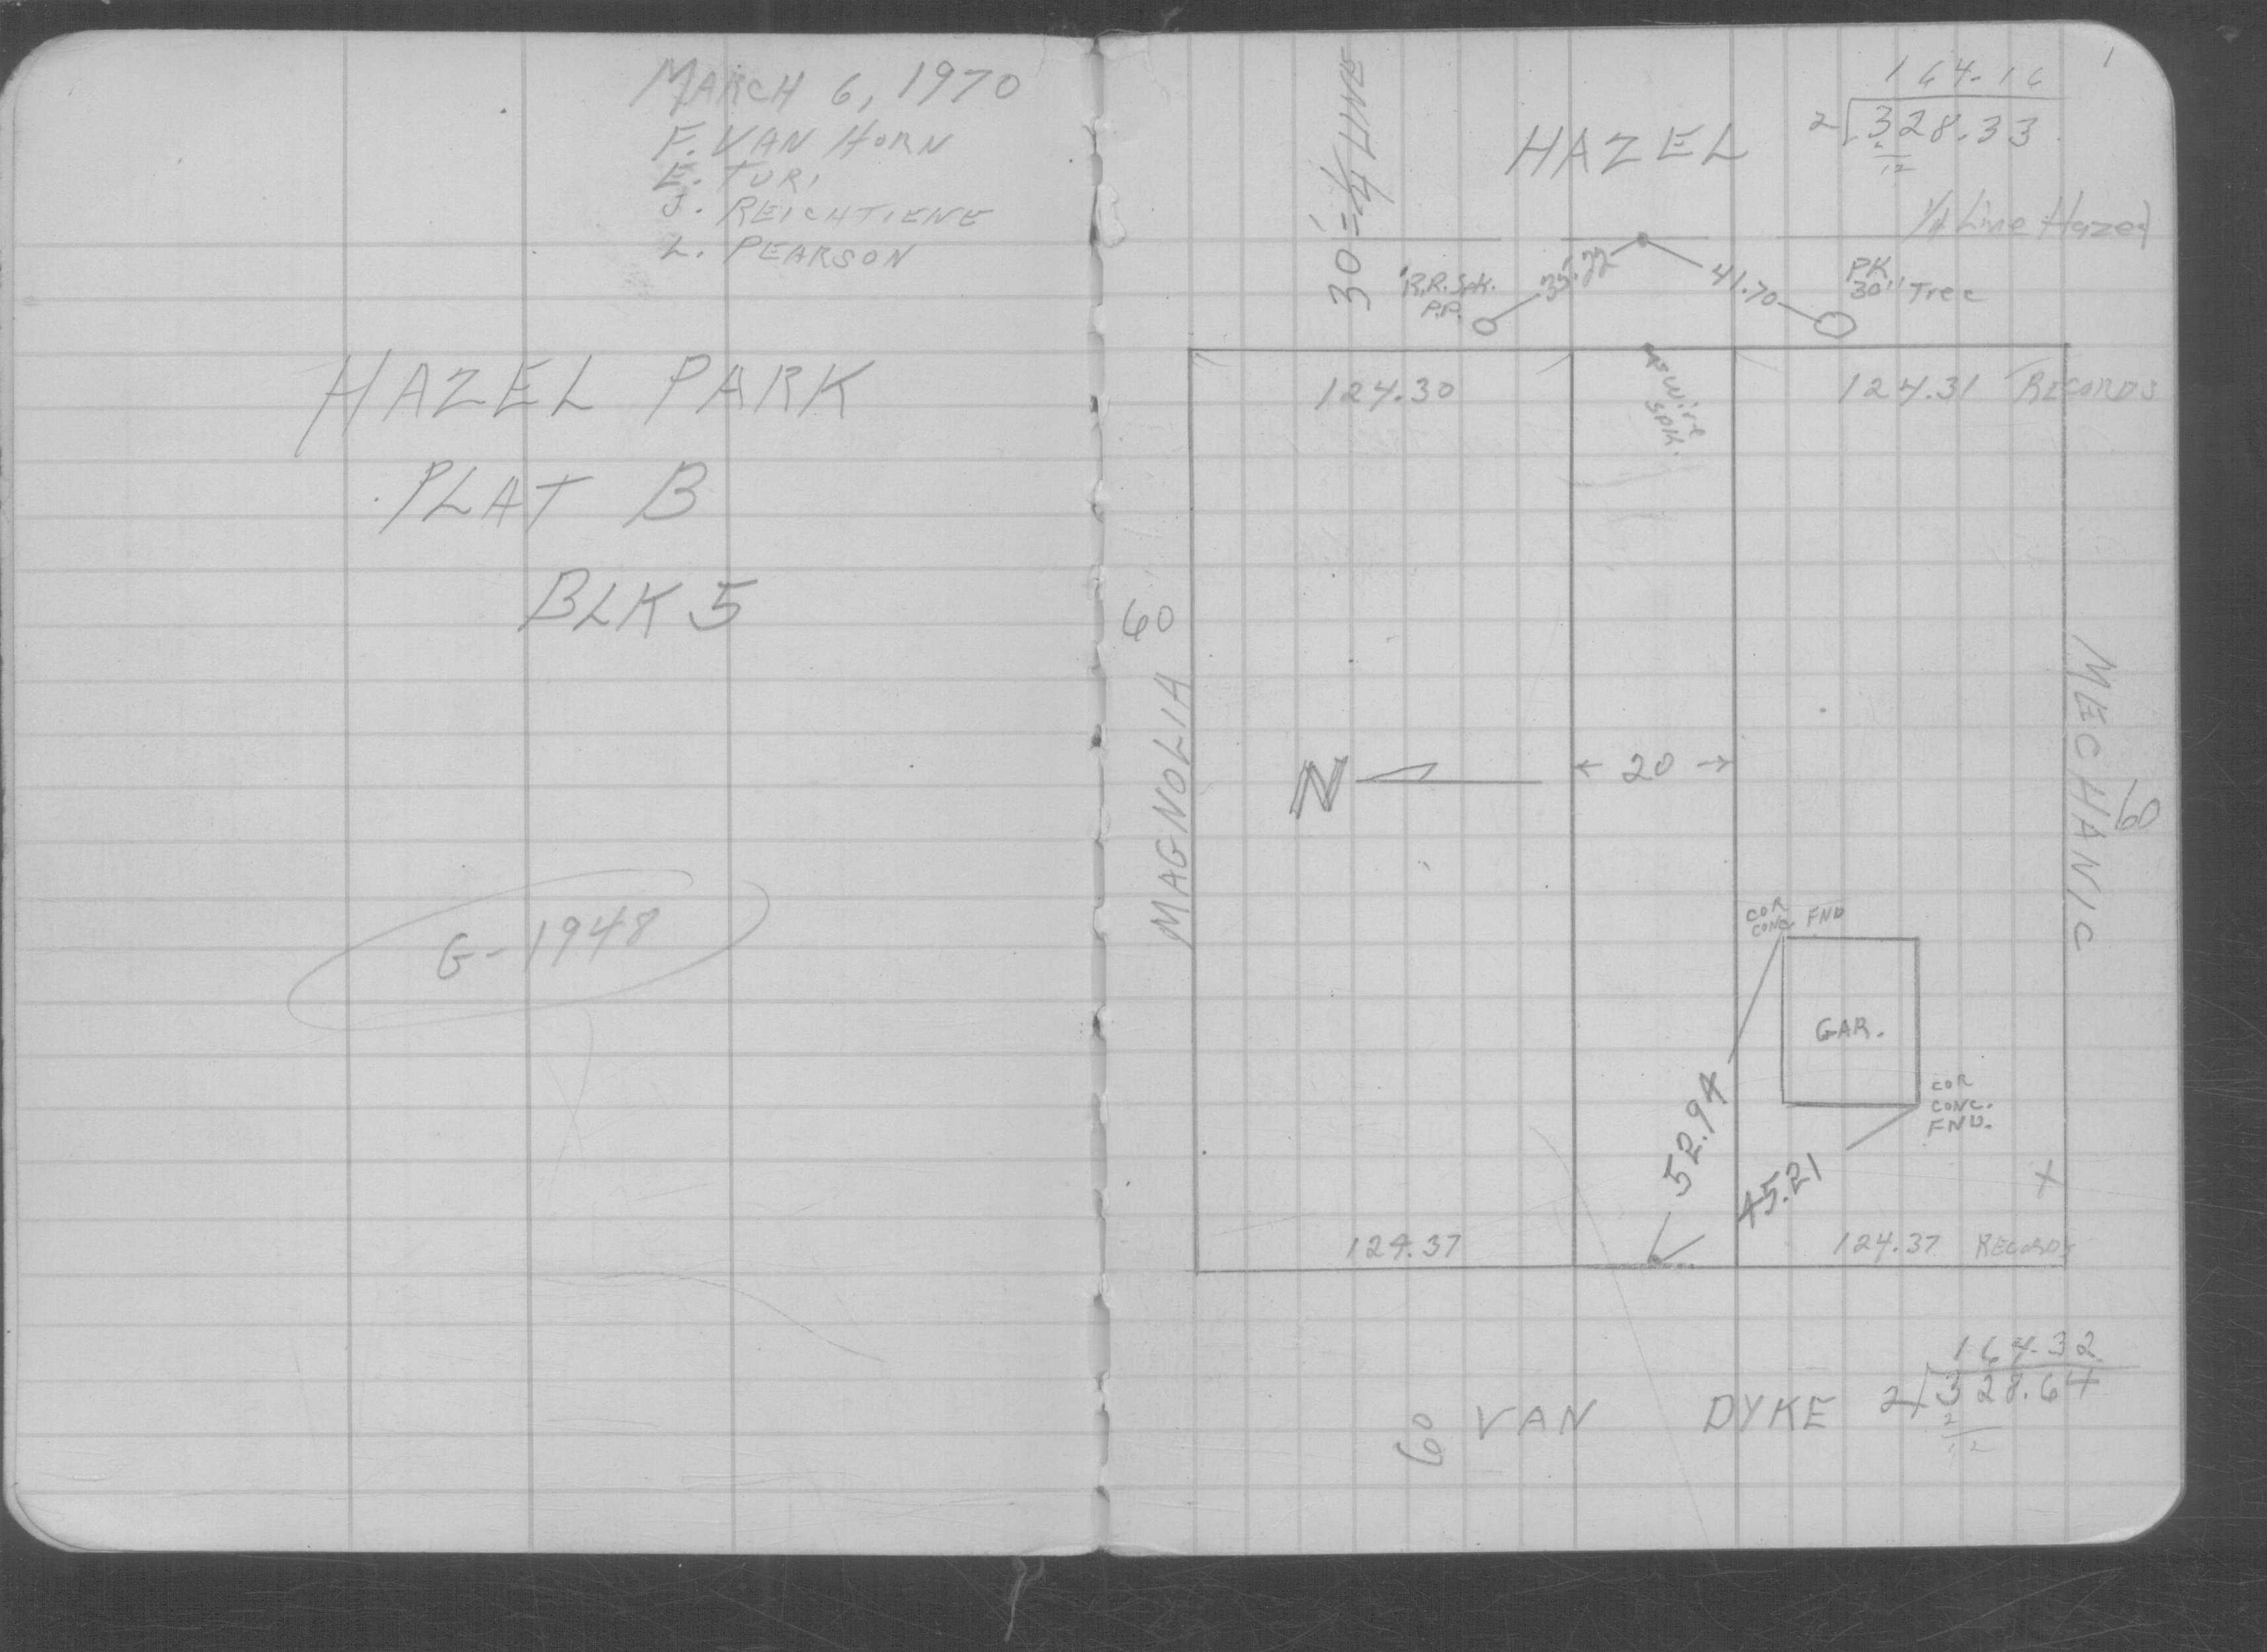 MARCH 6, 1970
F. VAN HORN
E. TURI
J. REICHTIENE
L. PEARSON
HAZEL PARK
PLAT B
BLK 5
G-1948
1
164.16
2 328.33
2
12
HAZEL
30' = 1/4 LINE
1/4 Line Hazel
R.R. Spk.
P.P.
35.22
41.70
PK
30" Tree
124.30
wire
spk.
124.31 RECORDS
60
MAGNOLIA
N
← 20 →
MECHANIC
60
COR
CONC. FND
GAR.
COR
CONC.
FND.
52.94
45.21
X
124.37
124.37 RECORDS
60 VAN DYKE
164.32
2 328.64
2
12